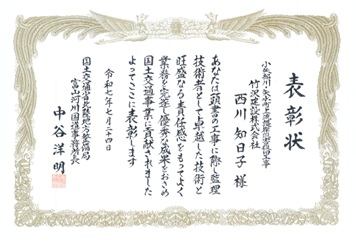 表彰状
竹沢建設株式会社
西川 知日子 様
あなたは頭書の工事に際し監理
技術者として卓越した技術と
旺盛なる責任感をもってよく
業務を完遂し優秀な成果をおさめ
国土交通事業に貢献されました
よってここに表彰します
令和七年七月二十四日
国土交通省北陸地方整備局
富山河川国道事務所長
中谷 洋明